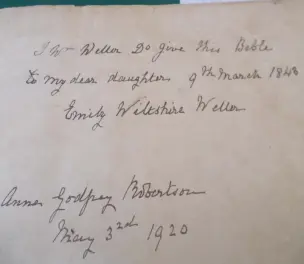 I Wm Weller Do give this Bible
to my dear daughter 9th March 1848
Emily Wiltshire Weller
Annes Godfrey Robertson
May 3nd 1920